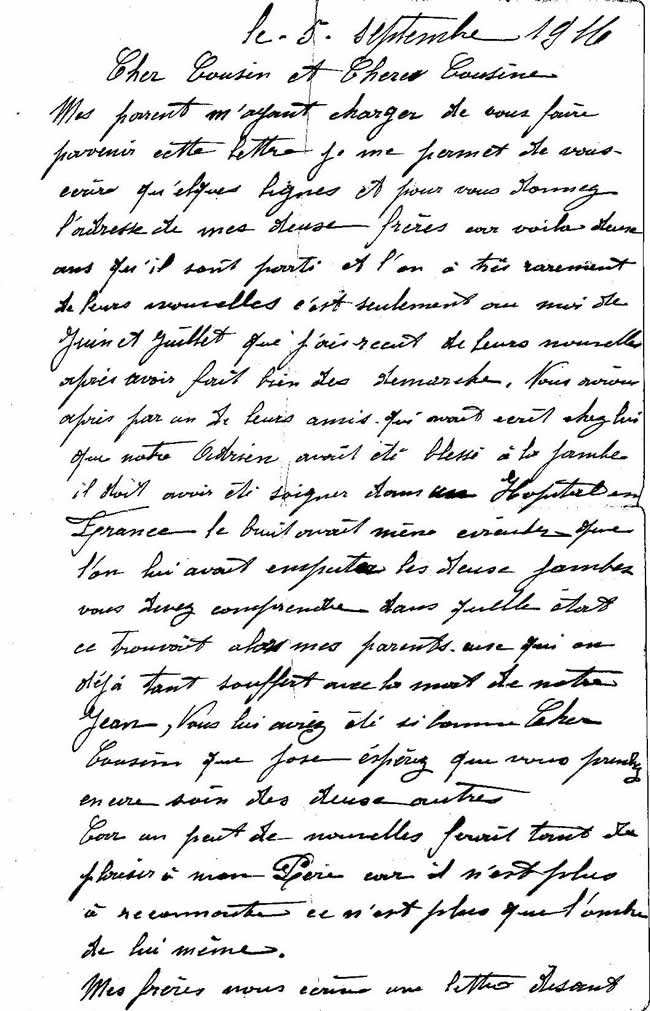 le 5 septembre 1916
Cher Cousin et Chere Cousine
Mes parent m'ayant charger de vous faire
parvenir cette lettre je me permet de vous
ecrire qu'elques lignes et pour vous donnez
l'adresse de mes deuse frères car voila deuse
ans qu'il sont parti et l'on à très rarement
de leurs nouvelles c'est seulement au moi de
Juin et Juillet que j'ais recut de leurs nouvelles
après avoir fait bien des demarche. Nous avions
apris par un de leurs amis qui avait ecrit chez lui
que notre Adrien avait été blessé à la jambe
il doit avoir été soigner dans un Hopital en
France le bruit avait même circuler que
l'on lui avait emputer les deuse jambes
vous devez comprendre dans quelle état
ce trouvait alors mes parents euse qui on
déjà tant souffert avec la mort de notre
Jean, Vous lui aviez été si bonne Cher
Cousine que jose éspérez que vous prendrez
encore soin des deuse autres
Car un peut de nouvelles ferait tant de
plaisir à mon Père car il n'est plus
à reconnaitre ce n'est plus que l'ombre
de lui même.
Mes frères nous ecrive une lettre disant